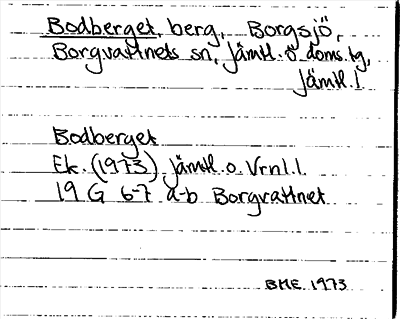 Bodberget, berg, Borgsjö,
Borgvattnets sn, Jämtl. ö. doms. tg,
Jämtl. l
Bodberget
Ek. (1973) Jämtl. o. Vrnl. l.
19 G 6-7 a-b Borgvattnet
BME 1973